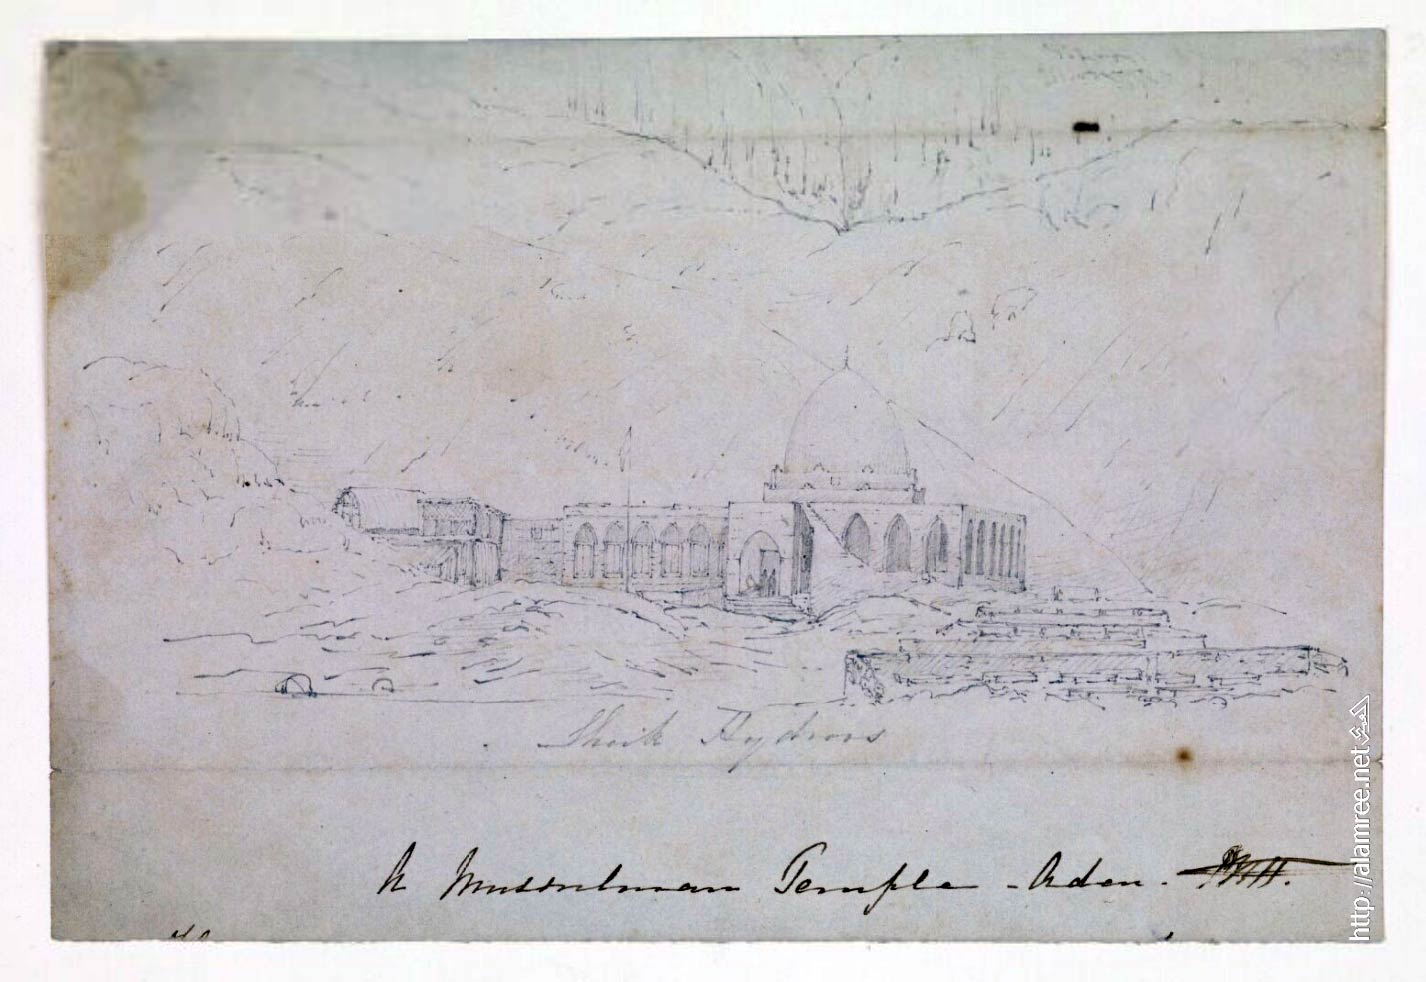 Sheik Hydroos
A Mussulman Temple - Aden.
http://alamree.net